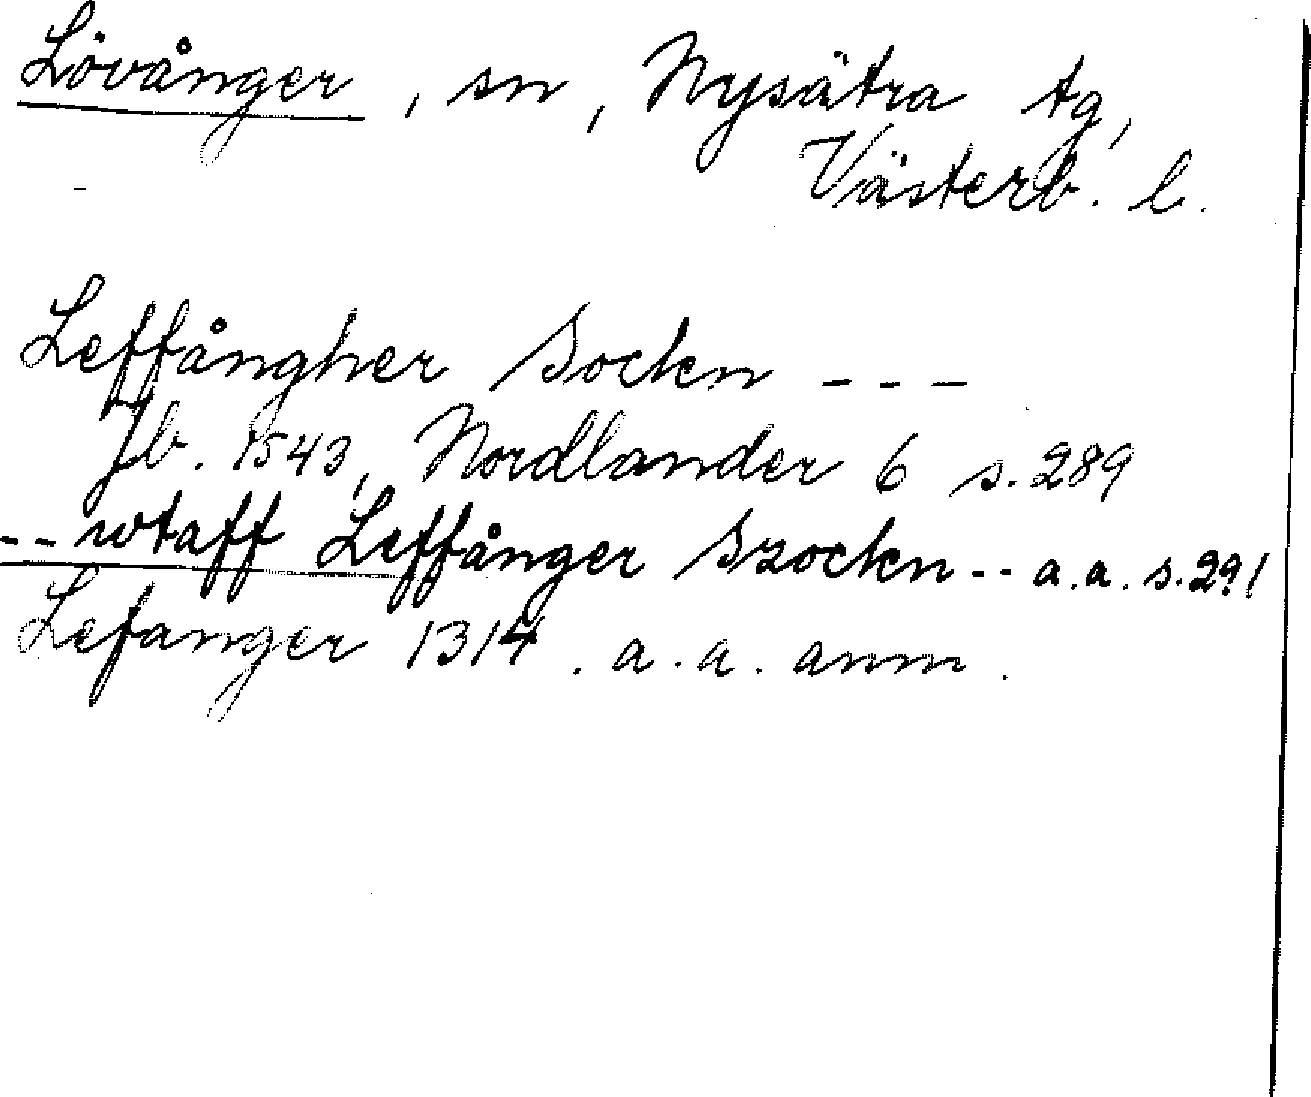 Lövånger, sn, Nysätra tg,
Västerb. l.
Leffångher Sockn ---
Jb. 1543, Nordlander 6 s. 289
-- wtaff Leffånger Szockn -- a.a. s. 291
Lefanger 1314. a.a. anm.